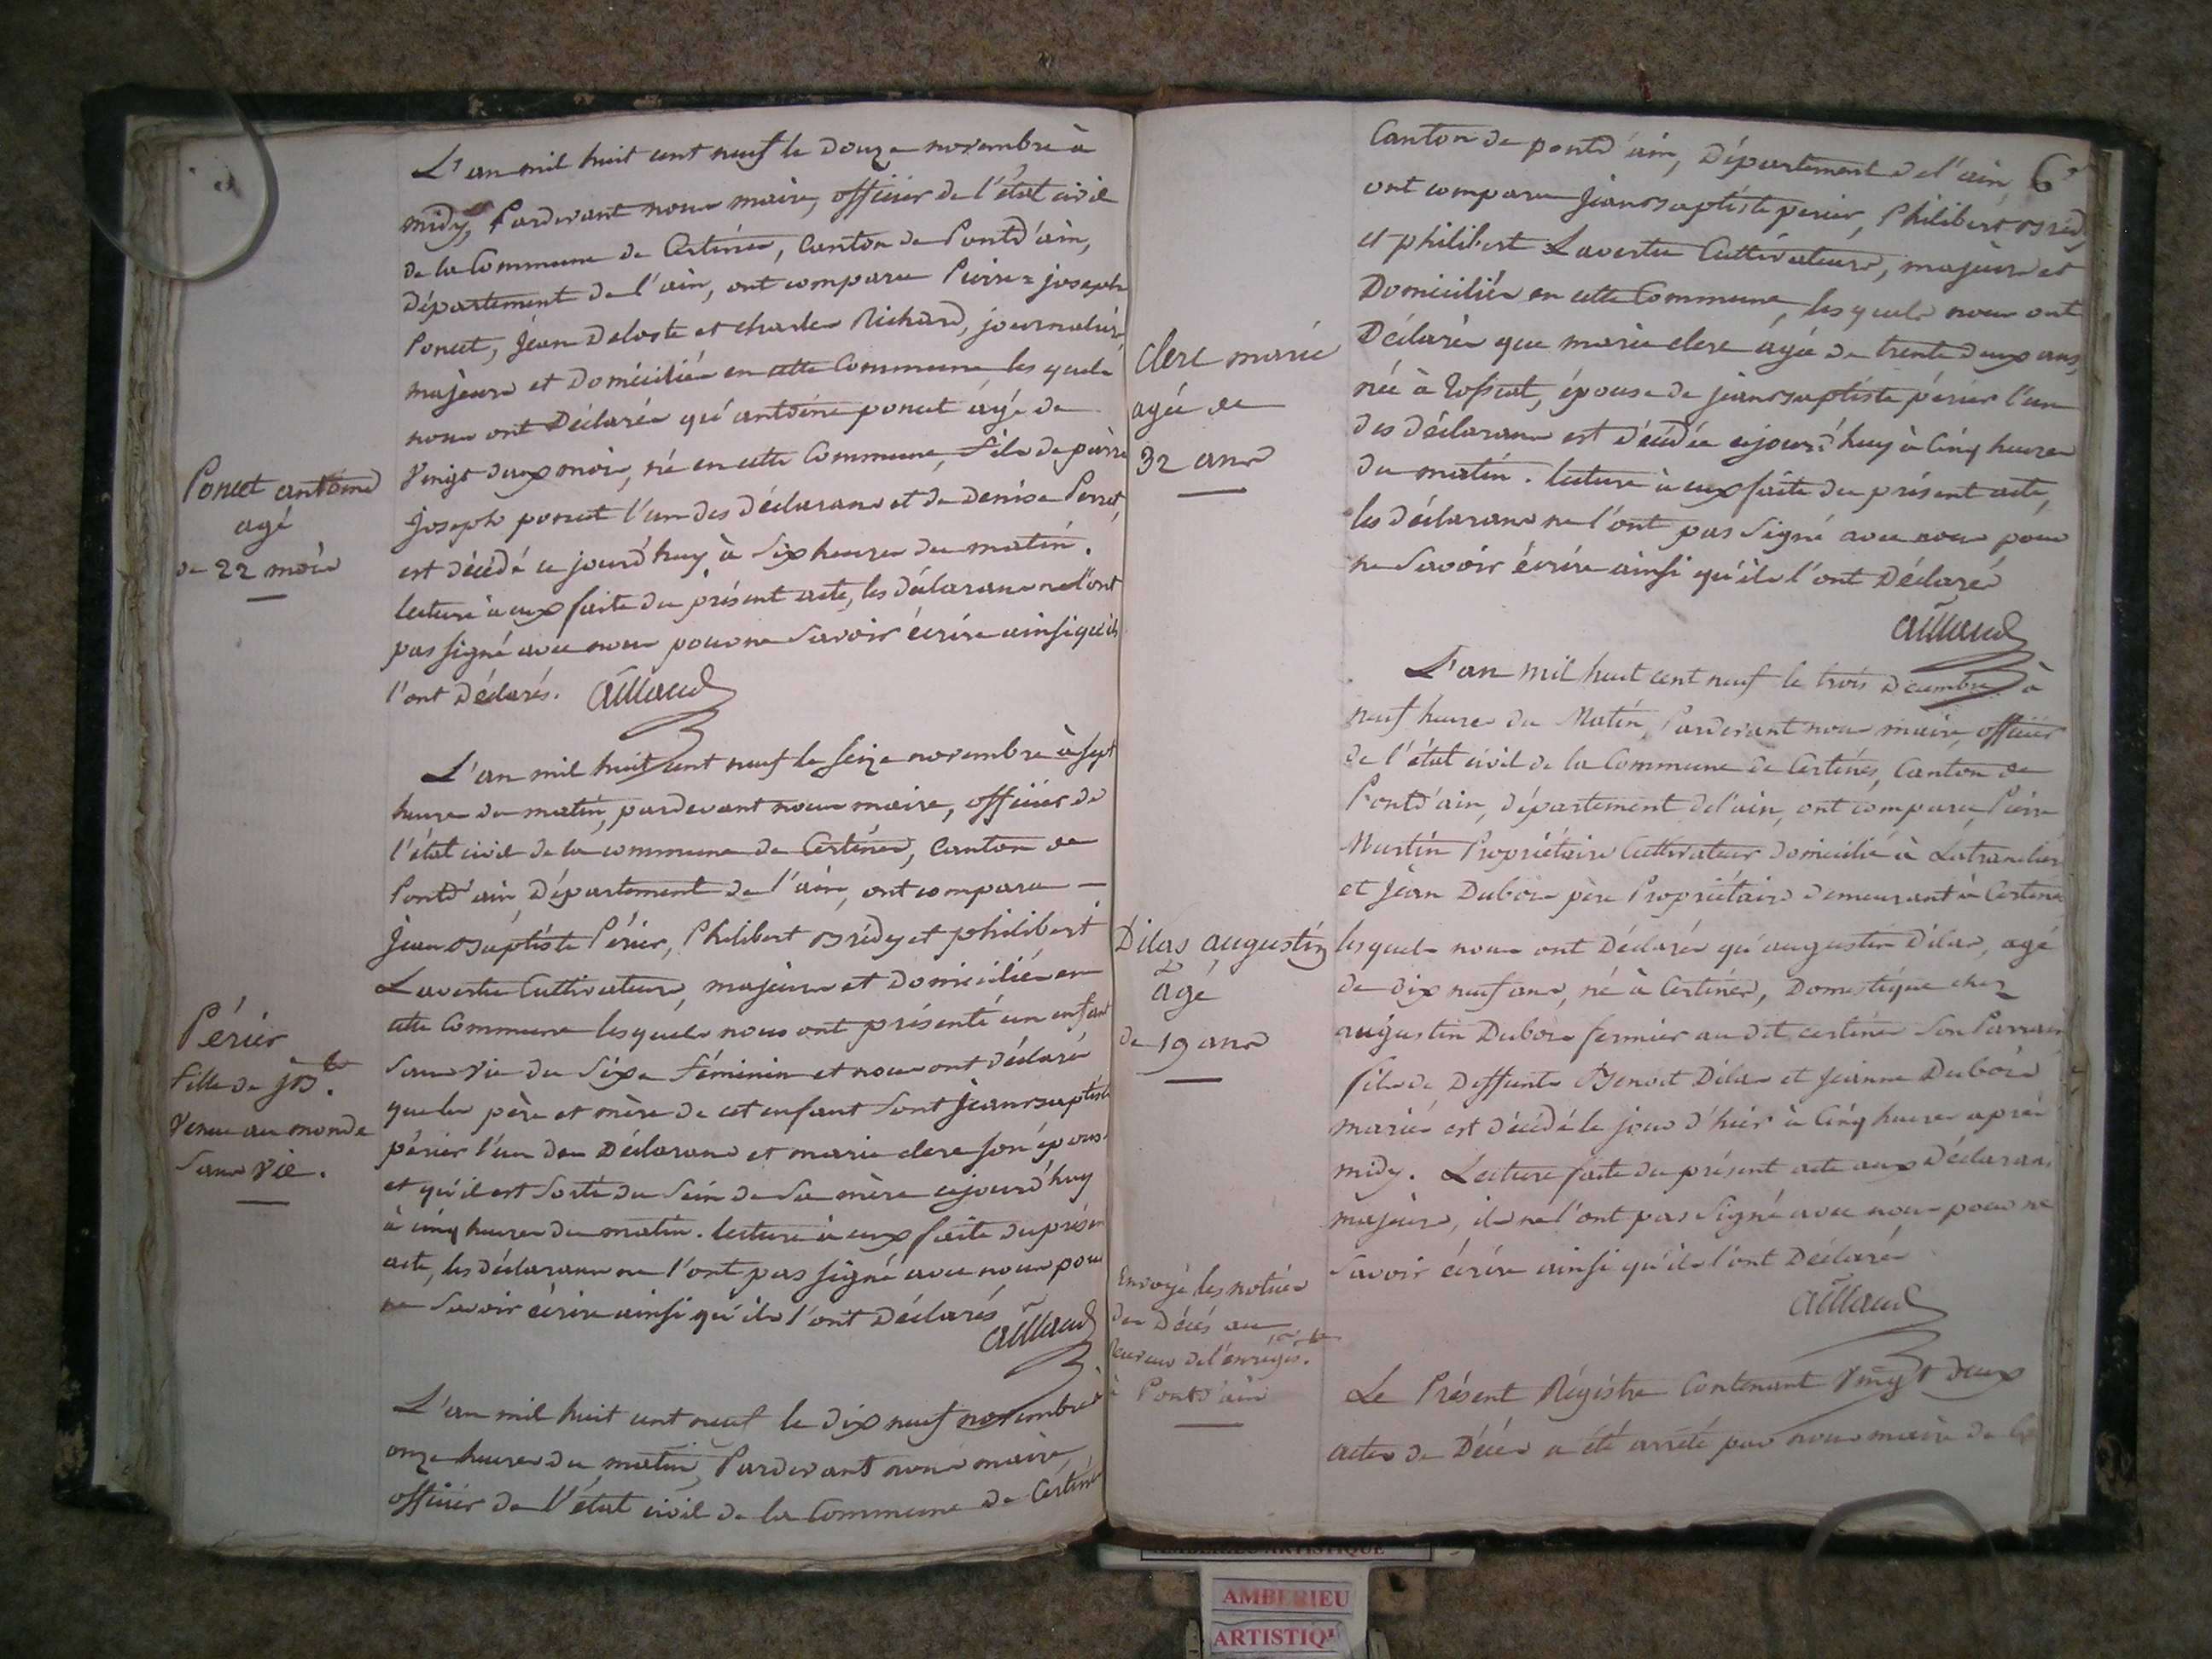 L'an mil huit cent neuf le douze novembre à
midy, Pardevant nous maire, officier de l'état civil
de la Commune de Certines, Canton de Pontd'ain,
Département de l'ain, ont comparu Pierre=joseph
Poncet, jean Deloste et charles Richard, journaliers,
majeurs et Domiciliés en cette Commune les quels
nous ont Déclarés qu'antoine poncet agé de
Vingt deux mois, né en cette Commune, fils de pierre
joseph poncet l'un des déclarans et de Denise Perret,
est décédé ce jourd'huy à Six heures du matin.
lecture à eux faite du présent acte, les déclarans ne l'ont
pas signé avec nous pour ne Savoir écrire ainsi qu'ils
l'ont Déclarés. aillaud
Poncet antoine
agé
de 22 mois
L'an mil huit cent neuf le Seize novembre à Sept
heures du matin, pardevant nous maire, officier de
l'état civil de la commune de Certines, Canton de
Pontd'ain, Département de l'ain, ont comparu
Jean Baptiste Périer, Philibert Brédy et philibert
Lavertu Cultivateurs, majeurs et Domiciliés en
cette Commune lesquels nous ont présenté un enfant
Sans vie du Sixe féminin et nous ont déclaré
que les père et mère de cet enfant Sont jean baptiste
périer l'un des Déclarans et marie clerc Son épouse
et qu'il est Sortie du Sein de Sa mère cejourd'huy
à cinq heures du matin. lecture à eux faite du présent
acte, les déclarans ne l'ont pas signé avec nous pour
ne Savoir écrire ainsi qu'ils l'ont Déclarés
aillaud
Périer
fille de j B.te
Venue au monde
Sans vie.
L'an mil huit cent neuf le dix neuf novembre à
onze heures du matin, Pardevant nous maire,
officier de l'état civil de la Commune de Certines
Canton de pontd'ain, Département de l'ain, 6
ont comparu Jean baptiste perier, Philibert Brédy
et philibert Lavertu Cultivateurs, majeurs et
Domiciliés en cette Commune, les quels nous ont
Déclarés que marie clerc agée de trente deux ans,
née à Tossiat, épouse de jean baptiste périer l'un
des déclarans est décédée cejourd'huy à Cinq heures
du matin. lecture à eux faite du présent acte,
les déclarans ne l'ont pas Signé avec nous pour
ne Savoir écrire ainsi qu'ils l'ont Déclaré
aillaud
clerc marie
agée de
32 ans
L'an mil huit cent neuf le trois Décembre à
neuf heures du Matin, Pardevant nous maire, officier
de l'état civil de la Commune de Certines, Canton de
Pontd'ain, département de l'ain, ont comparu, Pierre
Martin Propriétaire Cultivateur domicilié à Latranclière
et Jean Dubois père Propriétaire demeurant à Certines
lesquels nous ont Déclarés qu'augustin Dilas, agé
de dix neuf ans, né à Certines, Domestique chez
augustin Dubois fermier au dit certines Son Parrain
fils de Deffunts Benoit Dilas et Jeanne Dubois
mariés est décédé le jour d'hier à Cinq heures après
midy. Lecture faite du présent acte aux Déclarans
majeurs, ils ne l'ont pas Signé avec nous pour ne
Savoir écrire ainsi qu'ils l'ont Déclaré
aillaud
Dilas augustin
agé
de 19 ans
Envoyé les notices
des Décés au
Bureau de l'enregis.
à Pontd'ain
Le Présent Régistre Contenant Vingt deux
actes de Décés a été arrêté par nous maire de
AMBERIEU ARTISTIQUE
AMBERIEU
ARTISTIQU